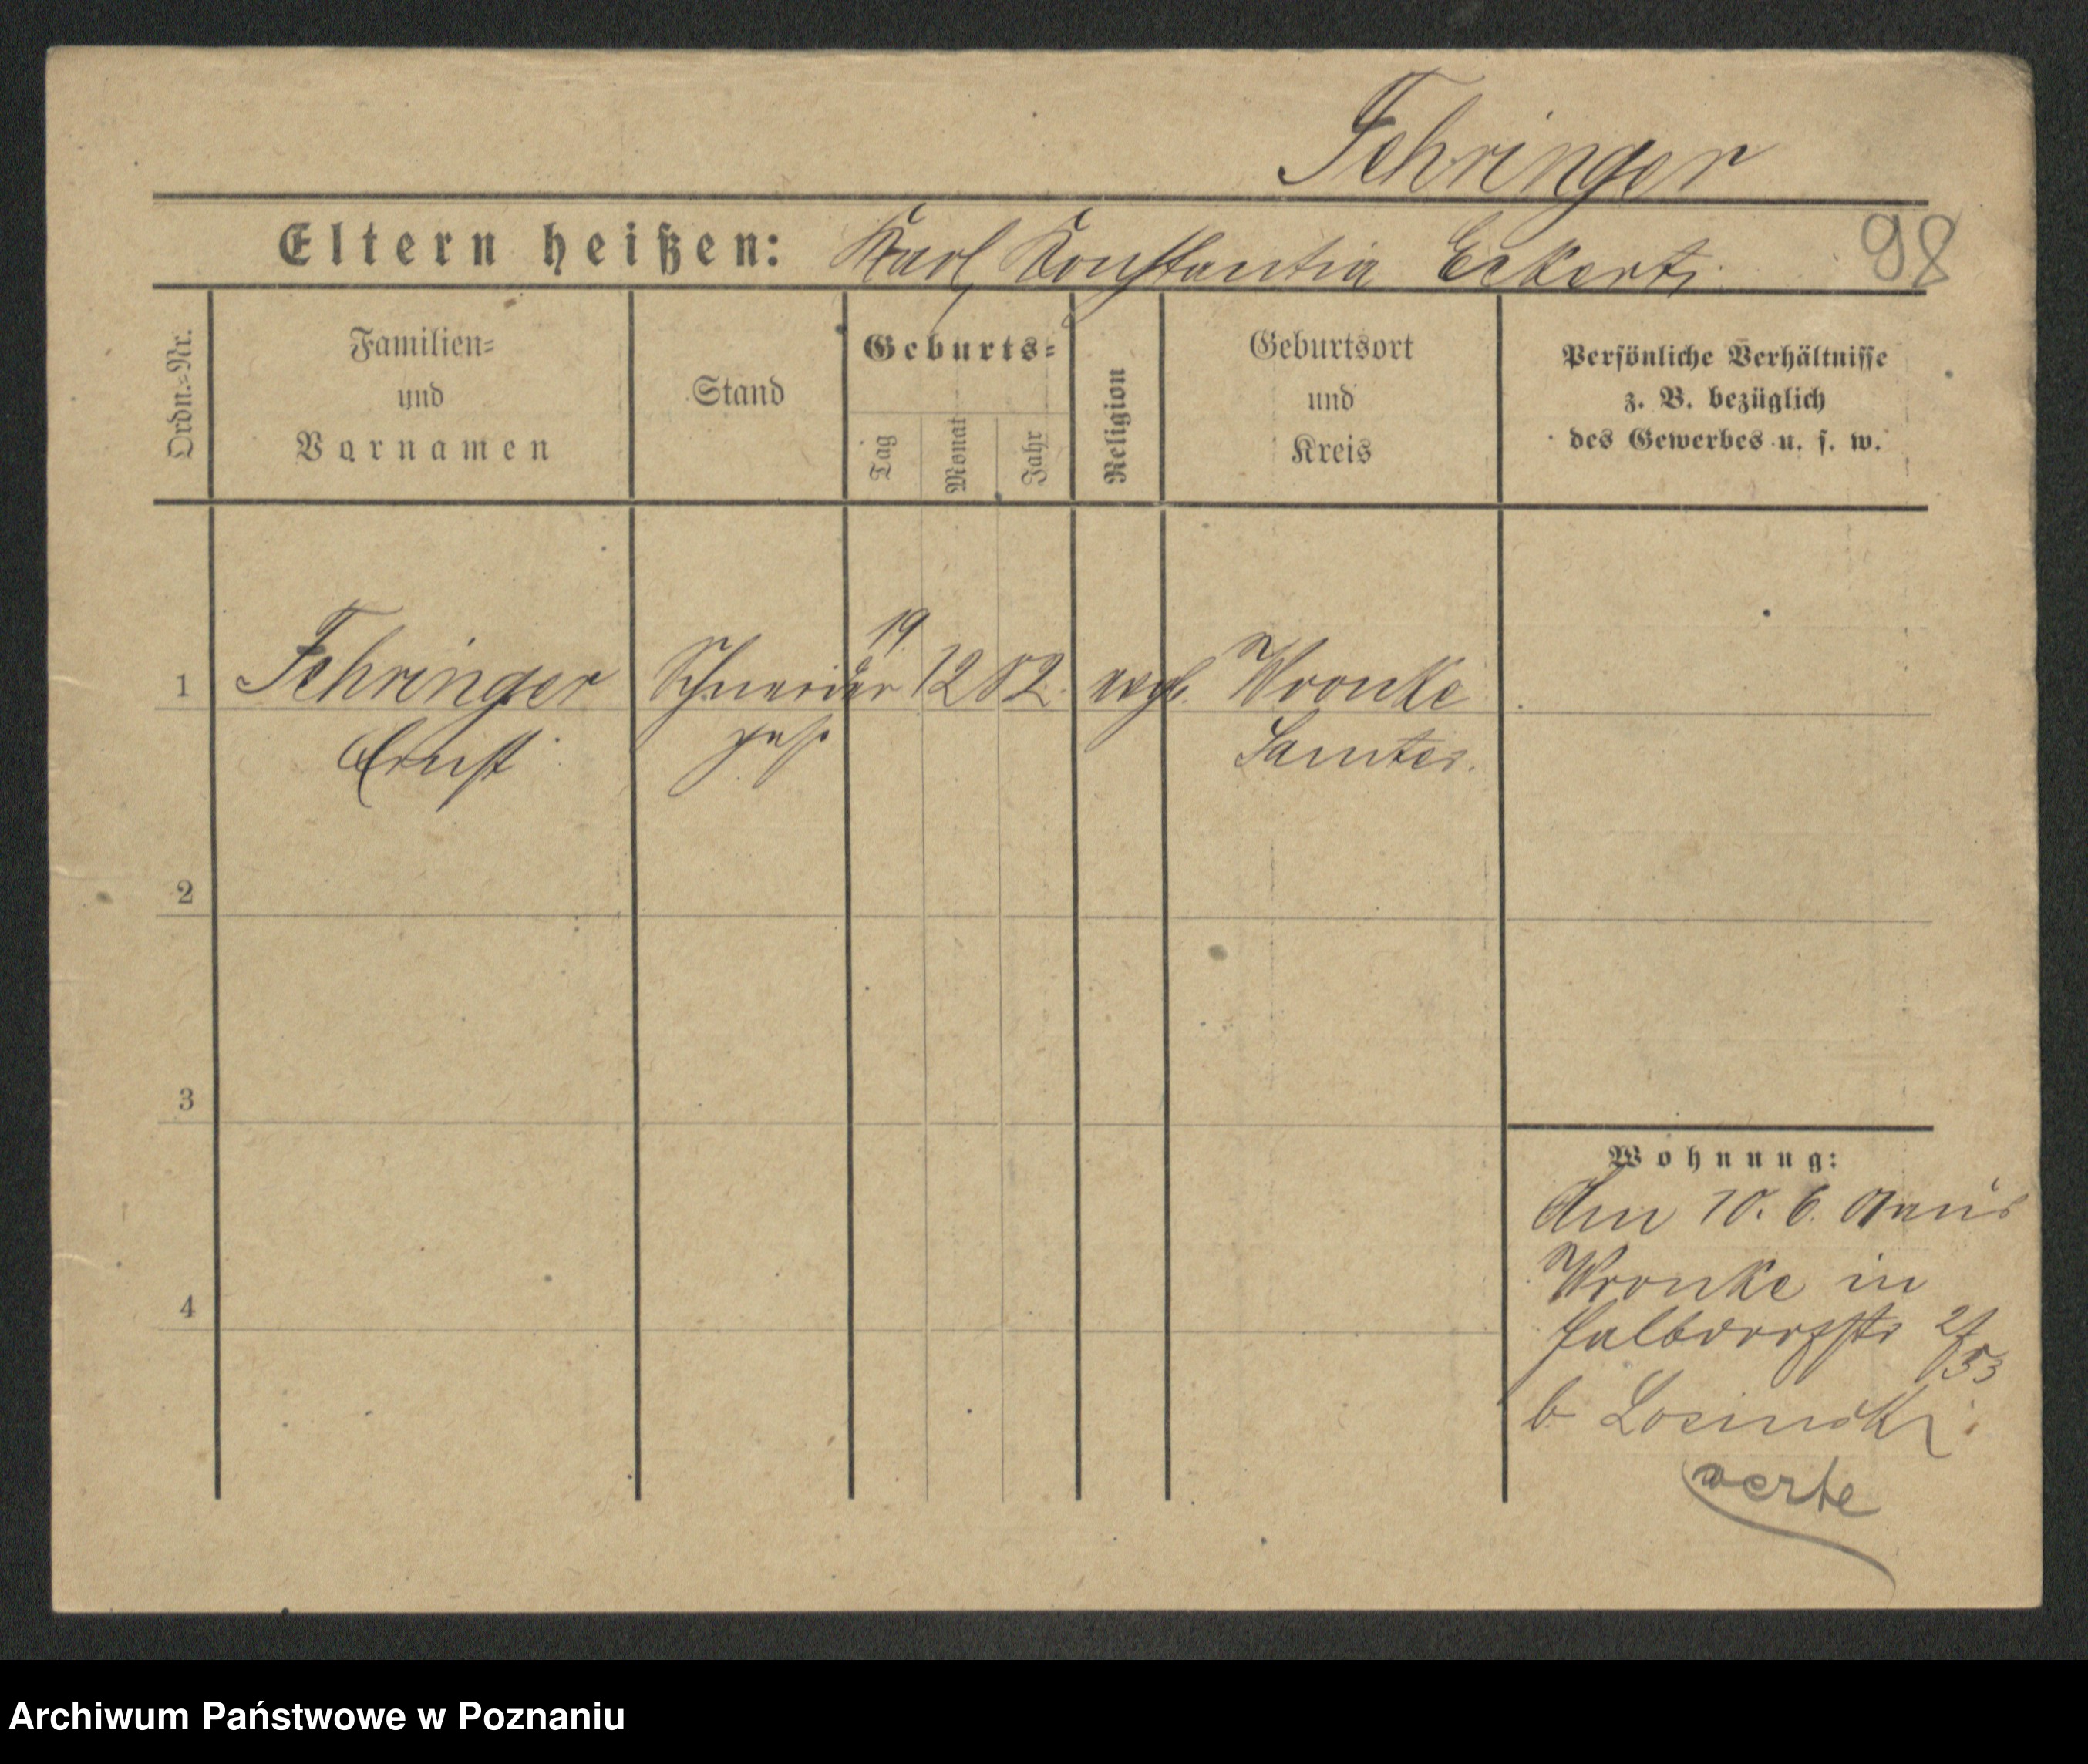 Fehringer
Eltern heißen: Karl, Konstantia Eckert.
98
Ordn.=Nr.
Familien=
und
Vornamen
Stand
Geburts=
Tag
Monat
Jahr
Religion
Geburtsort
und
Kreis
Persönliche Verhältnisse
z. B. bezüglich
des Gewerbes u. s. w.
1
Fehringer
Ernst
Schneider
19.
12
82.
evgl.
Wronke
Samter.
2
3
4
Wohnung:
Am 10. 6. aus
Wronke in
Halbdorfstr
b Losinski
verte
Archiwum Państwowe w Poznaniu